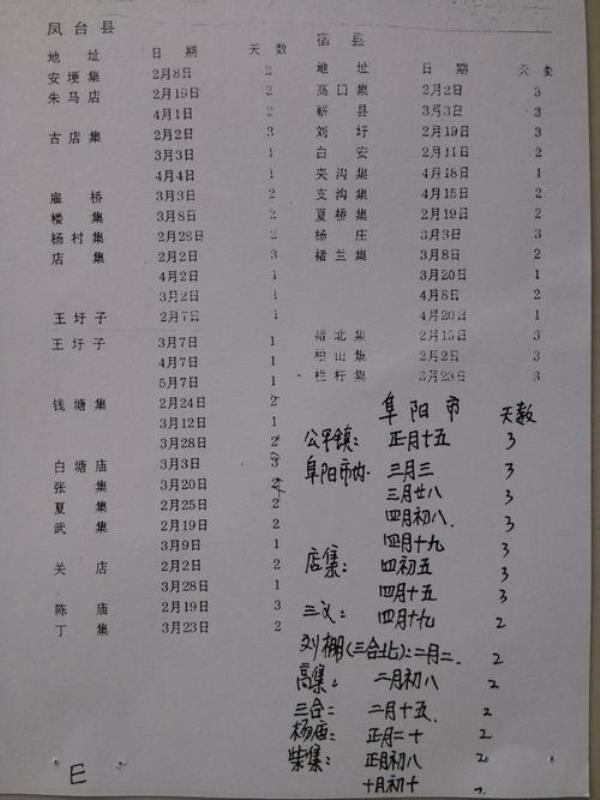 凤台县
地址 日期 天数
安埂集 2月8日 2
朱马店 2月19日 2
4月1日 2
古店集 2月2日 3
3月3日 1
4月4日 1
雇桥 3月3日 2
楼集 3月8日 2
杨村集 2月28日 2
店集 2月2日 3
4月2日 1
3月2日 1
王圩子 2月7日 1
王圩子 3月7日 1
4月7日 1
5月7日 1
钱塘集 2月24日 2
3月12日 1
3月28日 2
白塘庙 3月3日 3
张集 3月20日
夏集 2月25日 2
武集 2月19日 2
3月9日 1
关店 2月2日 2
3月28日 1
陈庙 2月19日 3
丁集 3月23日 2
E
宿县
地址 日期 天数
高口集 2月2日 3
蕲县 3月3日 3
刘圩 2月19日 3
白安 2月11日 2
夹沟集 4月18日 1
支沟集 4月15日 2
夏桥集 2月19日 2
杨庄 3月3日 3
褚兰集 3月8日 2
3月20日 1
4月8日 2
4月20日 1
褚北集 2月15日 3
柏山集 2月2日 3
栏杆集 3月23日 3
阜阳市 天数
公平镇: 正月十五 3
阜阳市内. 三月三 3
三月廿八 3
四月初八. 3
四月十九 3
店集: 四初五 3
四月十五 3
三义: 四月十九 2
刘棚(三合北): 二月二. 2
高集: 二月初八 2
三合: 二月十五. 2
杨庙: 正月二十 2
柴集: 正月初八 2
十月初十